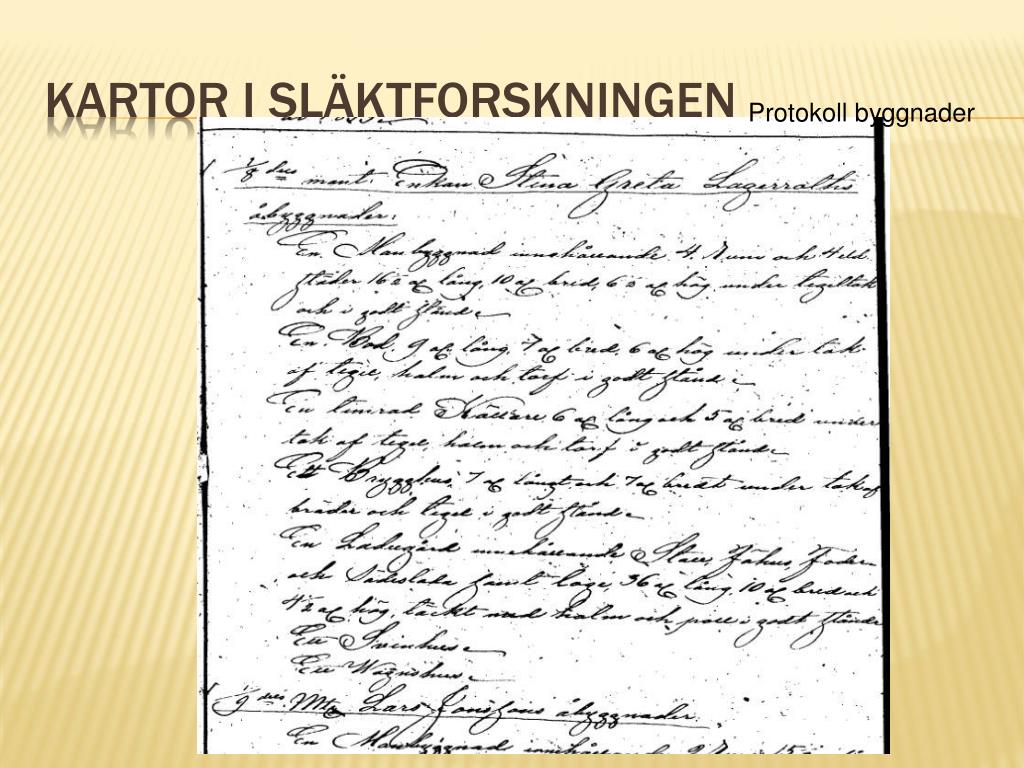 KARTOR I SLÄKTFORSKNINGEN
Protokoll byggnader
1/8 dels mant. Enkan Stina Greta Lagervalls
åbyggnader.
En Manbyggnad innehållande 4 Rum och 4 eld-
städer 16 1/2 al. lång, 10 al. bred, 6 1/2 al. hög under tegeltak
och i godt stånd.
En Bod 9 al. lång, 7 al. bred, 6 al. hög under tak
af tegel, halm och torf i godt stånd.
En timrad Källare 6 al. lång och 5 al. bred under
tak af tegel, halm och torf i godt stånd.
Ett Brygghus 7 al. långt och 7 al. bredt under tak af
bräder och tegel i godt stånd.
En Ladugård innehållande Stall, Fähus, Foder-
och Sädeslada samt loge, 36 al. lång, 10 al. bred och
4 1/2 al. hög, täckt med halm och i godt stånd
Ett Svinhus
Ett Wagnshus
1/9 dels Mtl Lars Jonssons åbyggnader.
En Manbyggnad innehållande 2 Rum